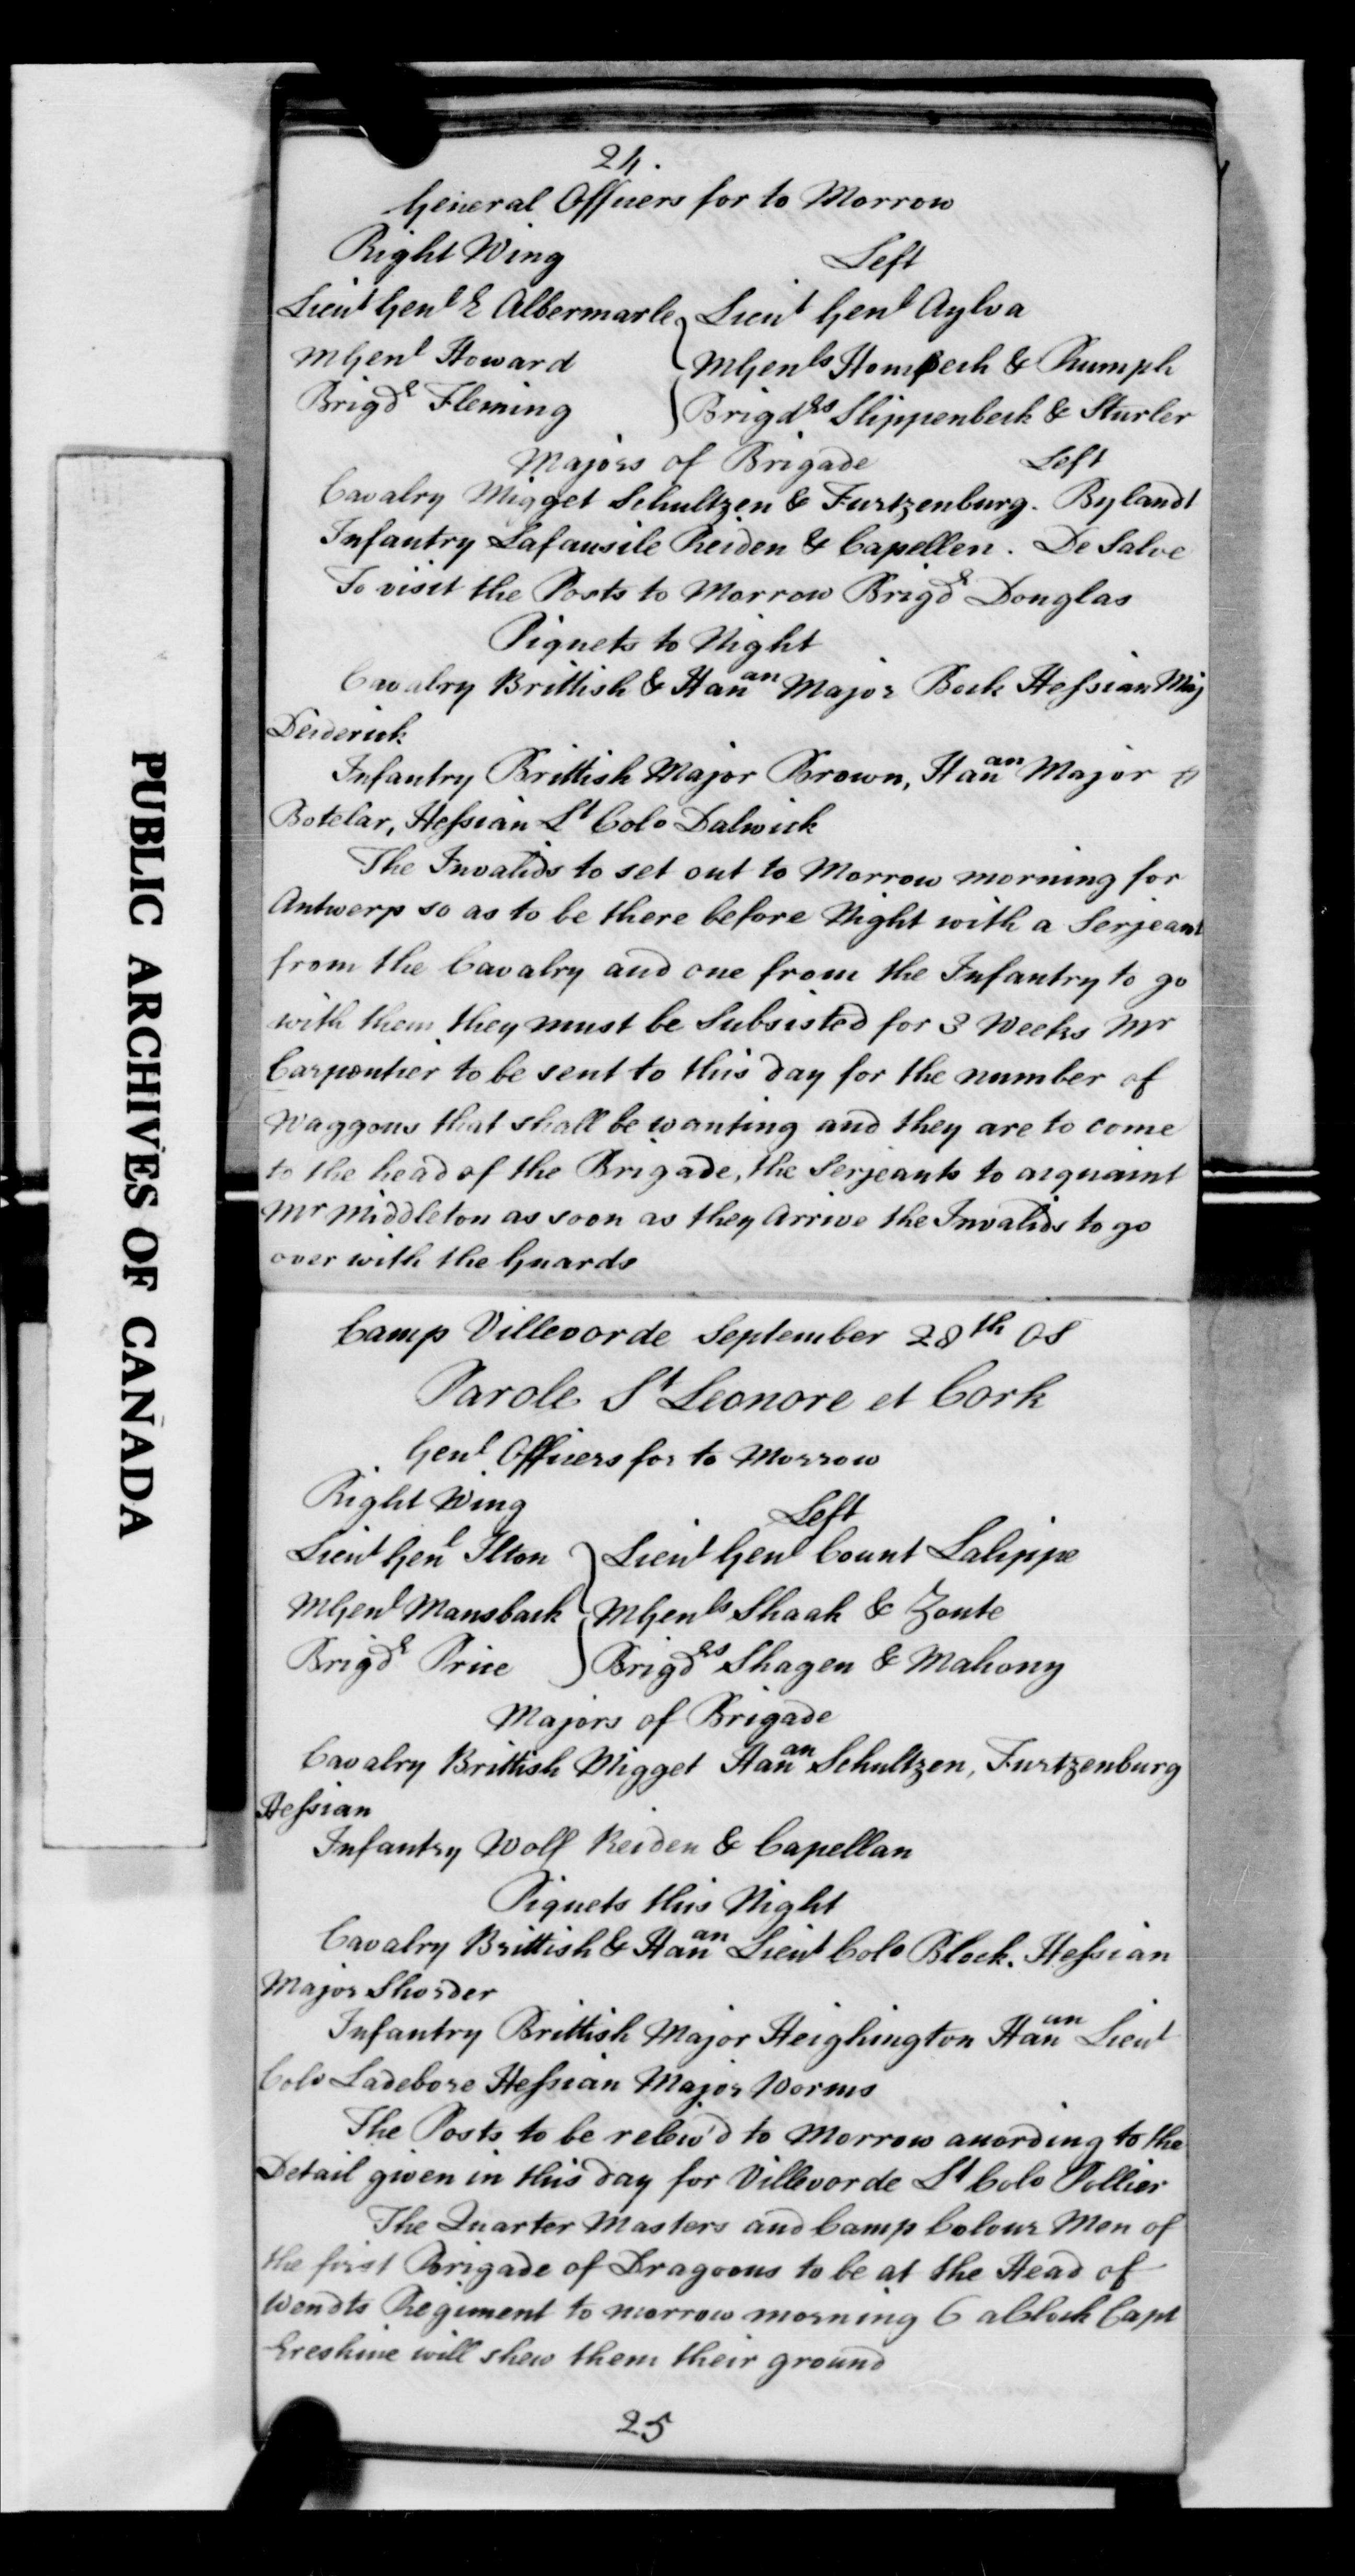 24.
General Officers for to Morrow
Right Wing Left
Lieut Genl E Albermarle Lieut Genl Aylva
MGenl Howard MGenls Hompech & Rumph
Brigdr Fleming Brigdrs Slippenbech & Sturler
Majors of Brigade Left
Cavalry Migget Schultzen & Furtzenburg. Bylandt
Infantry Lafausile Reiden & Capellen. De Salve
To visit the Posts to Morrow Brigdr Douglas
Piquets to Night
Cavalry Brittish & Hanan Major Bock Hessian Maj
Deiderick
Infantry Brittish Major Brown, Hanan Major
Botelar, Hessian Lt Colo Dalwick
The Invalids to set out to Morrow morning for
Antwerp so as to be there before Night with a Serjeant
from the Cavalry and one from the Infantry to go
with them they must be Subsisted for 3 Weeks Mr
Carpontier to be sent to this day for the number of
Waggons that shall be wanting and they are to come
to the head of the Brigade, the Serjeants to acquaint
Mr Middleton as soon as they Arrive the Invalids to go
over with the Guards
Camp Villevorde September 28th OS
Parole St Leonore et Cork
Genl Officers for to Morrow
Right Wing Left
Lieut Genl Ilton Lieut Genl Count Lalippe
MGenl Mansback MGenls Shaak & Zoute
Brigdr Price Brigdrs Shagen & Mahony
Majors of Brigade
Cavalry Brittish Migget Hanan Schultzen, Furtzenburg
Hessian
Infantry Wolf Reiden & Capellan
Piquets this Night
Cavalry Brittish & Hanan Lieut Colo Block. Hessian
Major Shorder
Infantry Brittish Major Heighington Hanan Lieut
Colo Ladebore Hessian Major Worms
The Posts to be releiv'd to Morrow according to the
Detail given in this day for Villevorde Lt Colo Pollier
The Quarter Masters and Camp Colour Men of
the first Brigade of Dragoons to be at the Head of
Wendts Regiment to morrow morning 6 aClock Capt
Ereskine will shew them their ground
25
PUBLIC ARCHIVES OF CANADA